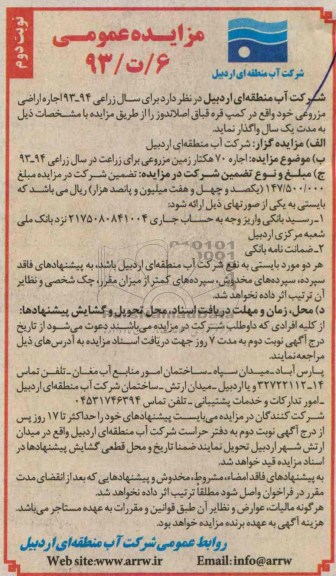 نوبت دوم
مزایده عمومی
۶/ت/۹۳
شرکت آب منطقه ای اردبیل
شرکت آب منطقه‌ای اردبیل در نظر دارد برای سال زراعی ۹۴_۹۳ اجاره اراضی
مزروعی خود واقع در کمپ قره قباق اصلاندوز را از طریق مزایده با مشخصات ذیل
به مدت یک سال واگذار نماید.
الف) مزایده گزار: شرکت آب منطقه‌ای اردبیل
ب) موضوع مزایده: اجاره ۷۰ هکتار زمین مزروعی برای زراعت در سال زراعی ۹۴_۹۳
ج) مبلغ و نوع تضمین شرکت در مزایده: تضمین شرکت در مزایده مبلغ
۱۴۷/۵۰۰/۰۰۰ (یکصد و چهل و هفت میلیون و پانصد هزار) ریال می باشد که
بایستی به یکی از صورتهای ذیل ارائه شود:
۱_ رسید بانکی واریز وجه به حساب جاری ۲۱۷۵۰۸۰۸۴۱۰۰۴ نزد بانک ملی
شعبه مرکزی اردبیل
۲_ ضمانت نامه بانکی
هر دو مورد بایستی به نفع شرکت آب منطقه‌ای اردبیل باشد، به پیشنهادهای فاقد
سپرده، سپرده‌های مخدوش، سپرده‌های کمتر از میزان مقرر، چک شخصی و نظایر
آن ترتیب اثر داده نخواهد شد.
د) محل، زمان و مهلت دریافت اسناد، محل تحویل و گشایش پیشنهادها:
از کلیه افرادی که داوطلب شرکت در مزایده می‌باشند دعوت می‌شود از تاریخ
درج آگهی نوبت دوم به مدت ۷ روز جهت دریافت اسناد مزایده به آدرس‌های ذیل
مراجعه نمایند.
پارس آباد_میدان سپاه_ساختمان امور منابع آب مغان_تلفن تماس
۱۴_۳۲۷۲۲۱۱۲ و یا اردبیل_میدان ارتش_ساختمان شرکت آب منطقه‌ای اردبیل
_امور تدارکات و خدمات پشتیبانی_تلفن تماس ۰۴۵۳۱۷۴۶۳۹۴
شرکت کنندگان در مزایده می‌بایست پیشنهادهای خود را حداکثر تا ۱۷ روز پس
از درج آگهی نوبت دوم به دفتر حراست شرکت آب منطقه‌ای اردبیل واقع در میدان
ارتش شهر اردبیل تحویل نمایند ضمنا تاریخ و محل قطعی گشایش پیشنهادها در
اسناد مزایده قید خواهد شد.
به پیشنهادهای فاقد امضاء، مشروط، مخدوش و پیشنهادهایی که بعد از انقضای مدت
مقرر در فراخوان واصل شود مطلقا ترتیب اثر داده نخواهد شد.
هرگونه مالیات، عوارض و نظایر آن طبق قوانین و مقررات به عهده مستاجر می‌باشد.
هزینه آگهی به عهده برنده مزایده خواهد بود.
روابط عمومی شرکت آب منطقه‌ای اردبیل
Web site:www.arrw.ir Email:info@arrw